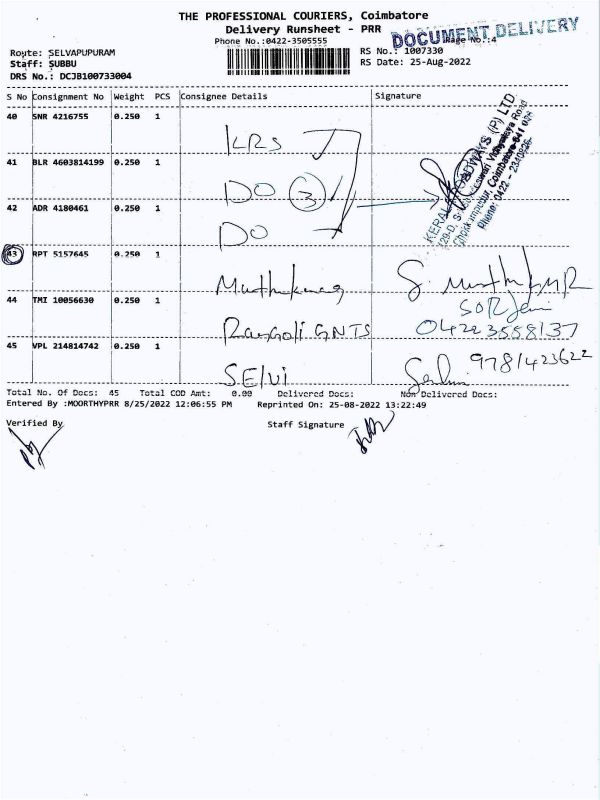 THE PROFESSIONAL COURIERS, Coimbatore
Delivery Runsheet - PRR
Phone No.:0422-3505555
DOCUMENT DELIVERY
Page No.:4
Route: SELVAPUPURAM
RS No.: 1007330
Staff: SUBBU
RS Date: 25-Aug-2022
DRS No.: DCJB100733004
S No Consignment No Weight PCS Consignee Details Signature
40 SNR 4216755 0.250 1 KRS
41 BLR 4603814199 0.250 1 DO 3
42 ADR 4180461 0.250 1 DO
KERALA ROADWAYS (P) LTD
Coimbatore-641 006
Phone: 0422 -
43 RPT 5157645 0.250 1
44 TMI 10056630 0.250 1 04223558137
45 VPL 214814742 0.250 1 SELVI 9781423622
Total No. Of Docs: 45 Total COD Amt: 0.00 Delivered Docs: Non Delivered Docs:
Entered By :MOORTHYPRR 8/25/2022 12:06:55 PM Reprinted On: 25-08-2022 13:22:49
Verified By Staff Signature